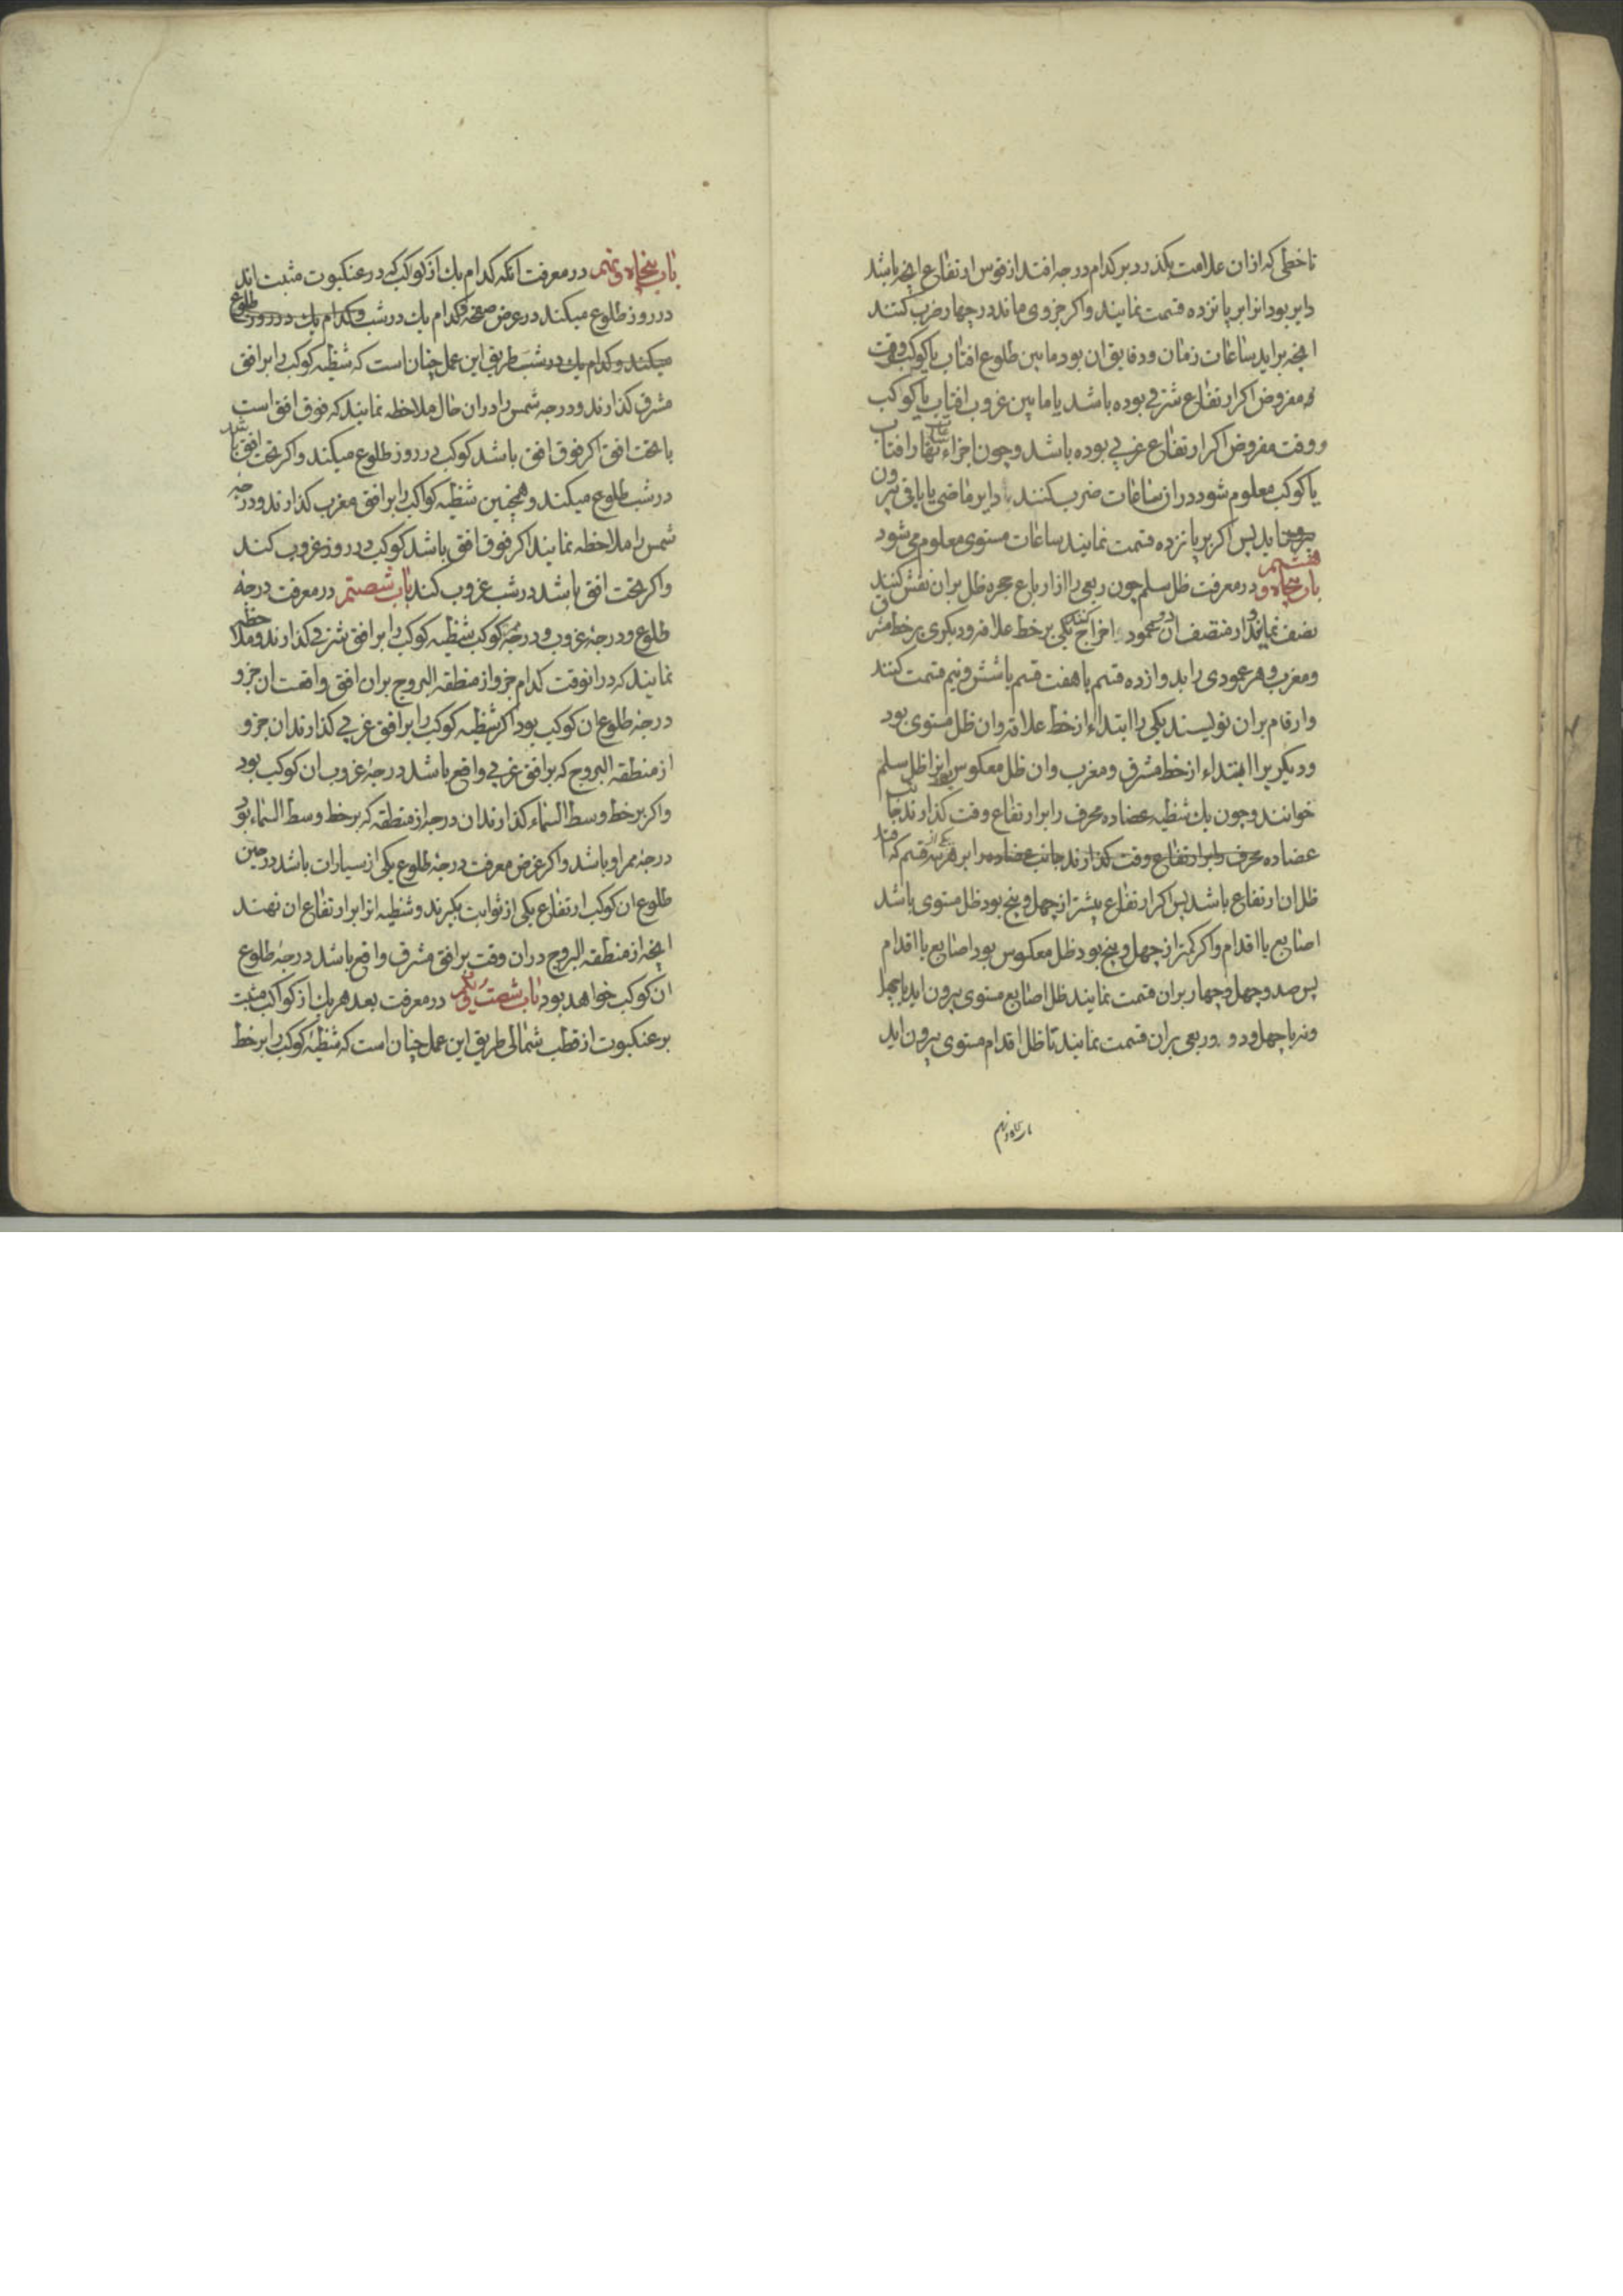 تا خطی که از ان علامت بگذرد بر کدام درجه افتد از قوس ارتفاع انچه باشد
دایر بود انرا بر پانزده قسمت نمایند و اکر جزوی ماند در چهار ضرب کنند
انچه براید ساعات زمان و دقایق ان بود مابین طلوع افتاب یا کوکب و وقت
مفروض اکر ارتفاع شرقی بوده باشد یا مابین غروب افتاب یا کوکب
و وقت مفروض اکر ارتفاع غربی بوده باشد و چون اجزاء ساعات نهار افتاب
یا کوکب معلوم شود در از ساعات ضرب کنند دایر ماضی یا باقی بیرون
اید پس اکر بر پانزده قسمت نمایند ساعات مستوی معلوم می شود
باب پنجاه و هشتم در معرفت ظل سلم چون ربعی را از ارباع حجره ظل بران نقش کنند
نصف نمایند و از منتصف ان دو عمود اخراج کنند یکی بر خط علاقه و دیکری بر خط مشرق
و مغرب و هر عمودی را بدوازده قسم یا هفت قسم یا شش و نیم قسمت کنند
و ارقام بران نویسند یکی را ابتداء از خط علاقه و ان ظل مستوی بود
و دیکریرا ابتداء از خط مشرق و مغرب و ان ظل معکوس و انرا ظل سلم
خوانند و چون یک شظیه عضاده محرف را بر ارتفاع وقت کذارند جانب
عضاده محرف را بر ارتفاع وقت کذارند جانب عضاده را بر هر قسم که افتد
ظل ان ارتفاع باشد پس اکر ارتفاع بیشتر از چهل و پنج بود ظل مستوی باشد
اصابع یا اقدام و اکر کمتر از چهل و پنج بود ظل معکوس بود اصابع یا اقدام
پس صد و چهل و چهار بران قسمت نمایند ظل اصابع مستوی بیرون اید یا چهل
و نه یا چهل و دو و ربعی بران قسمت نمایند تا ظل اقدام مستوی بیرون اید
باب پنجاه و نهم
باب پنجاه و نهم در معرفت انکه کدام یک از کواکب که در عنکبوت مثبت اند
در روز طلوع میکند در عرض صفحه و کدام یک در شب و کدام یک در روز طلوع
میکند و کدام یک در شب طریق این عمل چنان است که شظیه کوکب را بر افق
مشرق کذارند و درجه شمس را دران حال ملاحظه نمایند که فوق افق است
یا تحت افق اکر فوق افق باشد کوکب در روز طلوع میکند و اکر تحت افق باشد
در شب طلوع میکند و همچنین شظیه کواکب را بر افق مغرب کذارند و درجه
شمس را ملاحظه نمایند اکر فوق افق باشد کوکب در روز غروب کند
و اکر تحت افق باشد در شب غروب کند باب شصتم در معرفت درجه
طلوع و درجه غروب و درجه ممر کوکب شظیه کوکب را بر افق شرقی کذارند و ملاحظه
نمایند که در انوقت کدام جزو از منطقه البروج بران افق واقعست ان جزو
درجه طلوع ان کوکب بود اکر شظیه کوکب را بر افق غربی کذارند ان جزو
از منطقه البروج که بر افق غربی واقع باشد درجه غروب ان کوکب بود
و اکر بر خط وسط السماء کذارند ان درجه از منطقه که بر خط وسط السماء بود
درجه ممر او باشد و اکر غرض معرفت درجه طلوع یکی از سیارات باشد در حین
طلوع ان کوکب ارتفاع یکی از ثوابت بگیرند و شظیه انرا بر ارتفاع ان نهند
انچه از منطقه البروج دران وقت بر افق مشرق واقع باشد درجه طلوع
ان کوکب خواهد بود باب شصت و یکم در معرفت بعد هر یک از کواکب مثبت
بر عنکبوت از قطب شمالی طریق این عمل چنان است که شظیه کوکب را بر خط